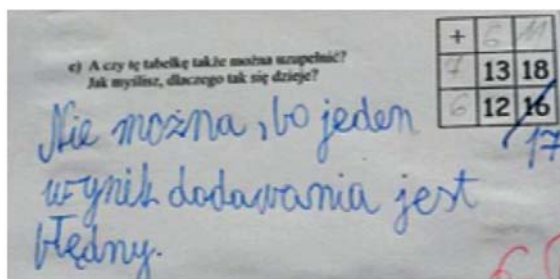 + 6 11
e) A czy tę tabelkę także można uzupełnić?
7 13 18
Jak myślisz, dlaczego tak się dzieje?
6 12 16
17
Nie można, bo jeden
wynik dodawania jest
błędny.